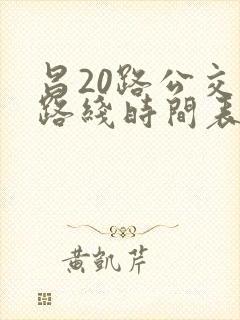 昌20路公交
路綫時間表
黄凯芹